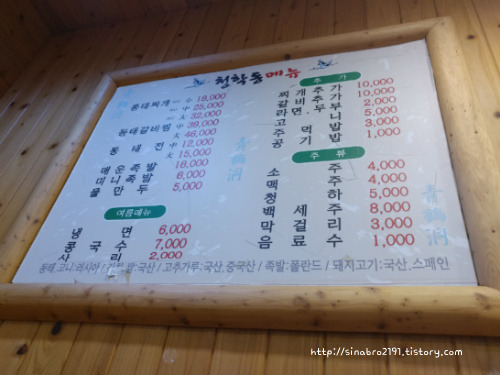 청학동메뉴
동태찌개 小 18,000
中 25,000
大 32,000
동태갈비찜 中 39,000
大 46,000
동태전 中 12,000
大 15,000
매운족발 18,000
미니족발 6,000
물만두 5,000
여름메뉴
냉면 6,000
콩국수 7,000
사리 2,000
추가
찌개추가 10,000
갈비추가 10,000
라면.두부 2,000
고니 5,000
주먹밥 3,000
공기밥 1,000
주류
소주 4,000
맥주 4,000
청하 5,000
백세주 8,000
막걸리 3,000
음료수 1,000
青鶴洞
青鶴洞
동태,고니:러시아 / 쌀,밥:국산 / 고추가루:국산,중국산 / 족발:폴란드 / 돼지고기:국산,스페인
http://sinabro2191.tistory.com